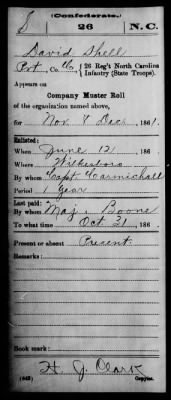 (Confederate.)
S 26 N.C.
David Shell
Pvt, Co. C, 26 Reg't North Carolina
Infantry (State Troops).
Appears on
Company Muster Roll
of the organization named above,
for Nov & Dec, 1861.
Enlisted:
When June 12, 186
Where Wilkesboro
By whom Capt Carmichall
Period 1 Year
Last paid:
By whom Maj. Boone
To what time Oct 31, 186
Present or absent Present
Remarks:
Book mark:
H. J. Clark
(642) Copyist.